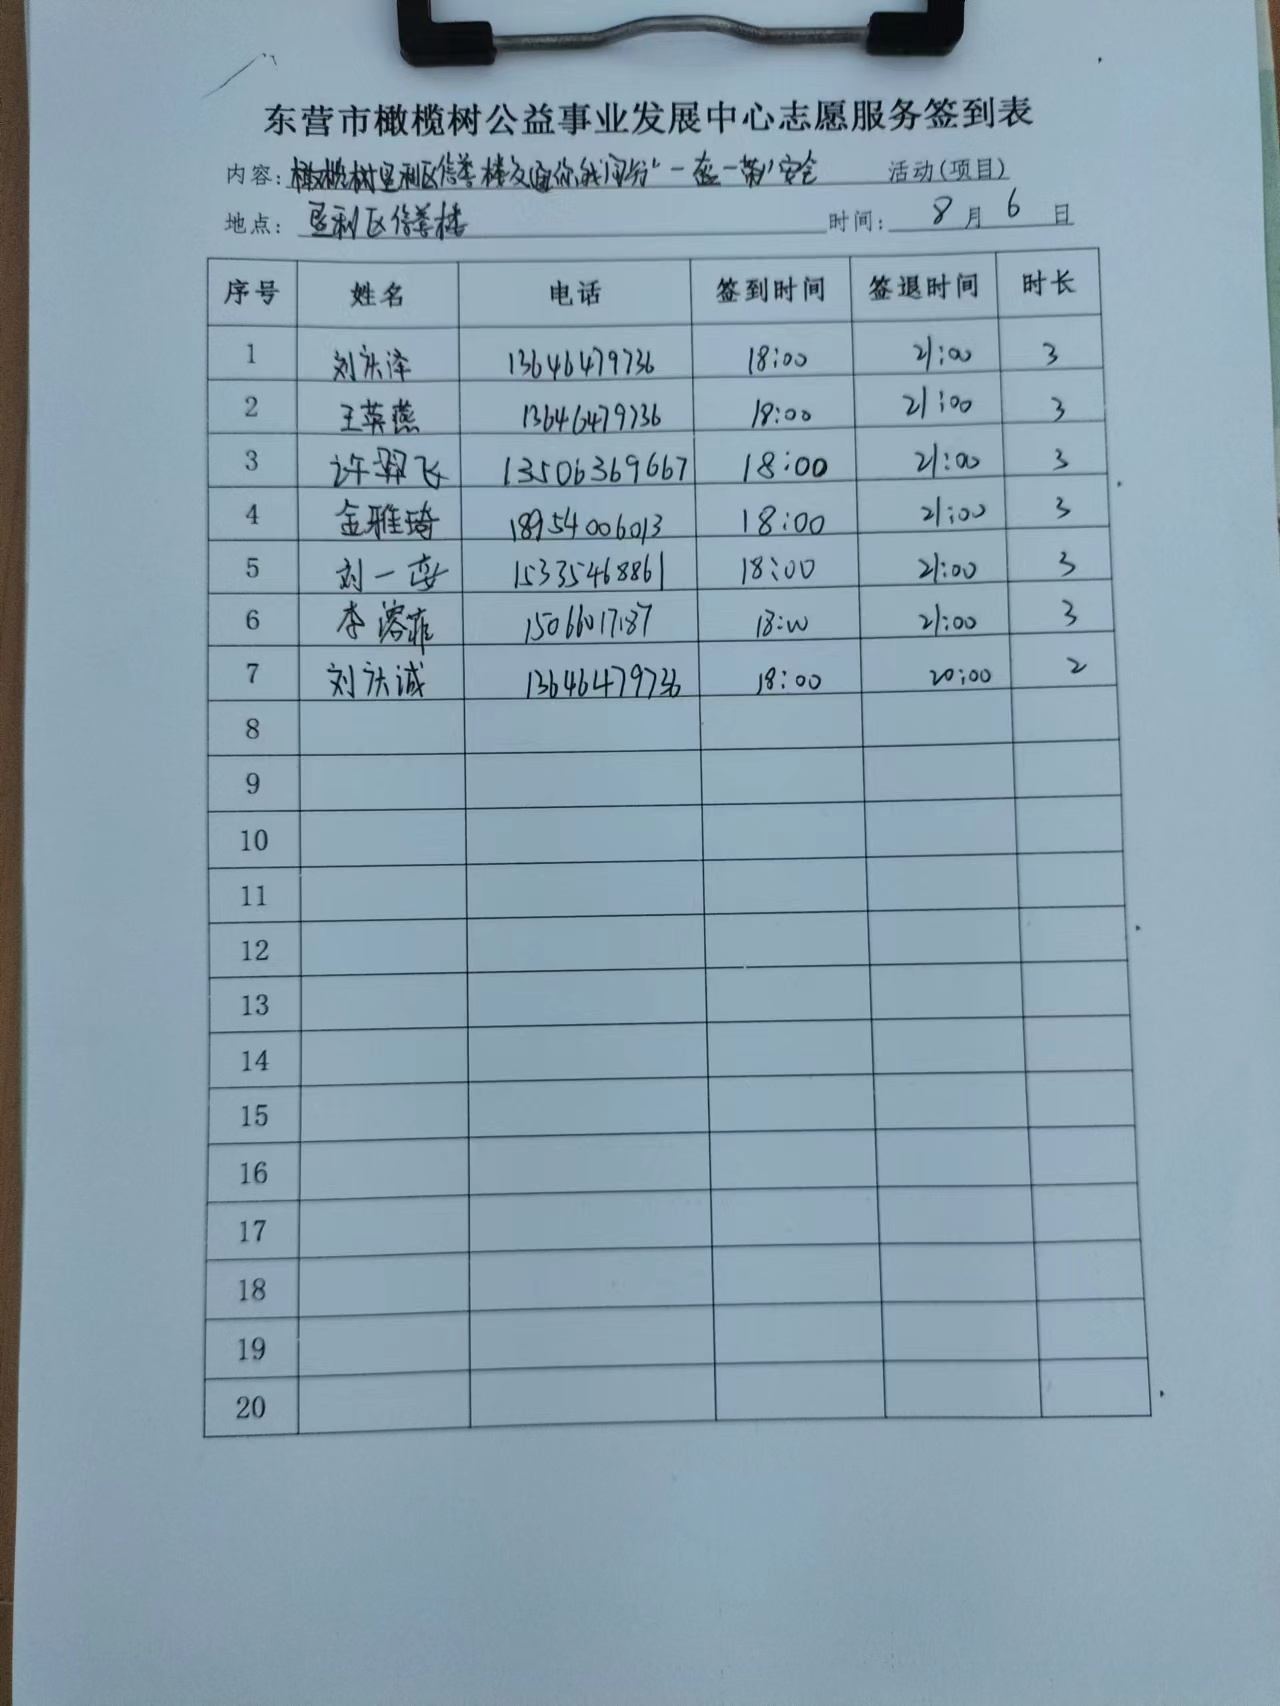 东营市橄榄树公益事业发展中心志愿服务签到表
内容: 橄榄树垦利区信誉楼交通你我同行"一盔一带"安全 活动(项目)
地点: 垦利区信誉楼 时间: 8月6日
序号 姓名 电话 签到时间 签退时间 时长
1 刘庆泽 13646479736 18:00 21:00 3
2 王英燕 13646479736 18:00 21:00 3
3 许羽飞 13506369667 18:00 21:00 3
4 金雅琦 18954006013 18:00 21:00 3
5 刘一 15335468861 18:00 21:00 3
6 李溶菲 15066017187 18:00 21:00 3
7 刘庆诚 13646479736 18:00 20:00 2
8
9
10
11
12
13
14
15
16
17
18
19
20